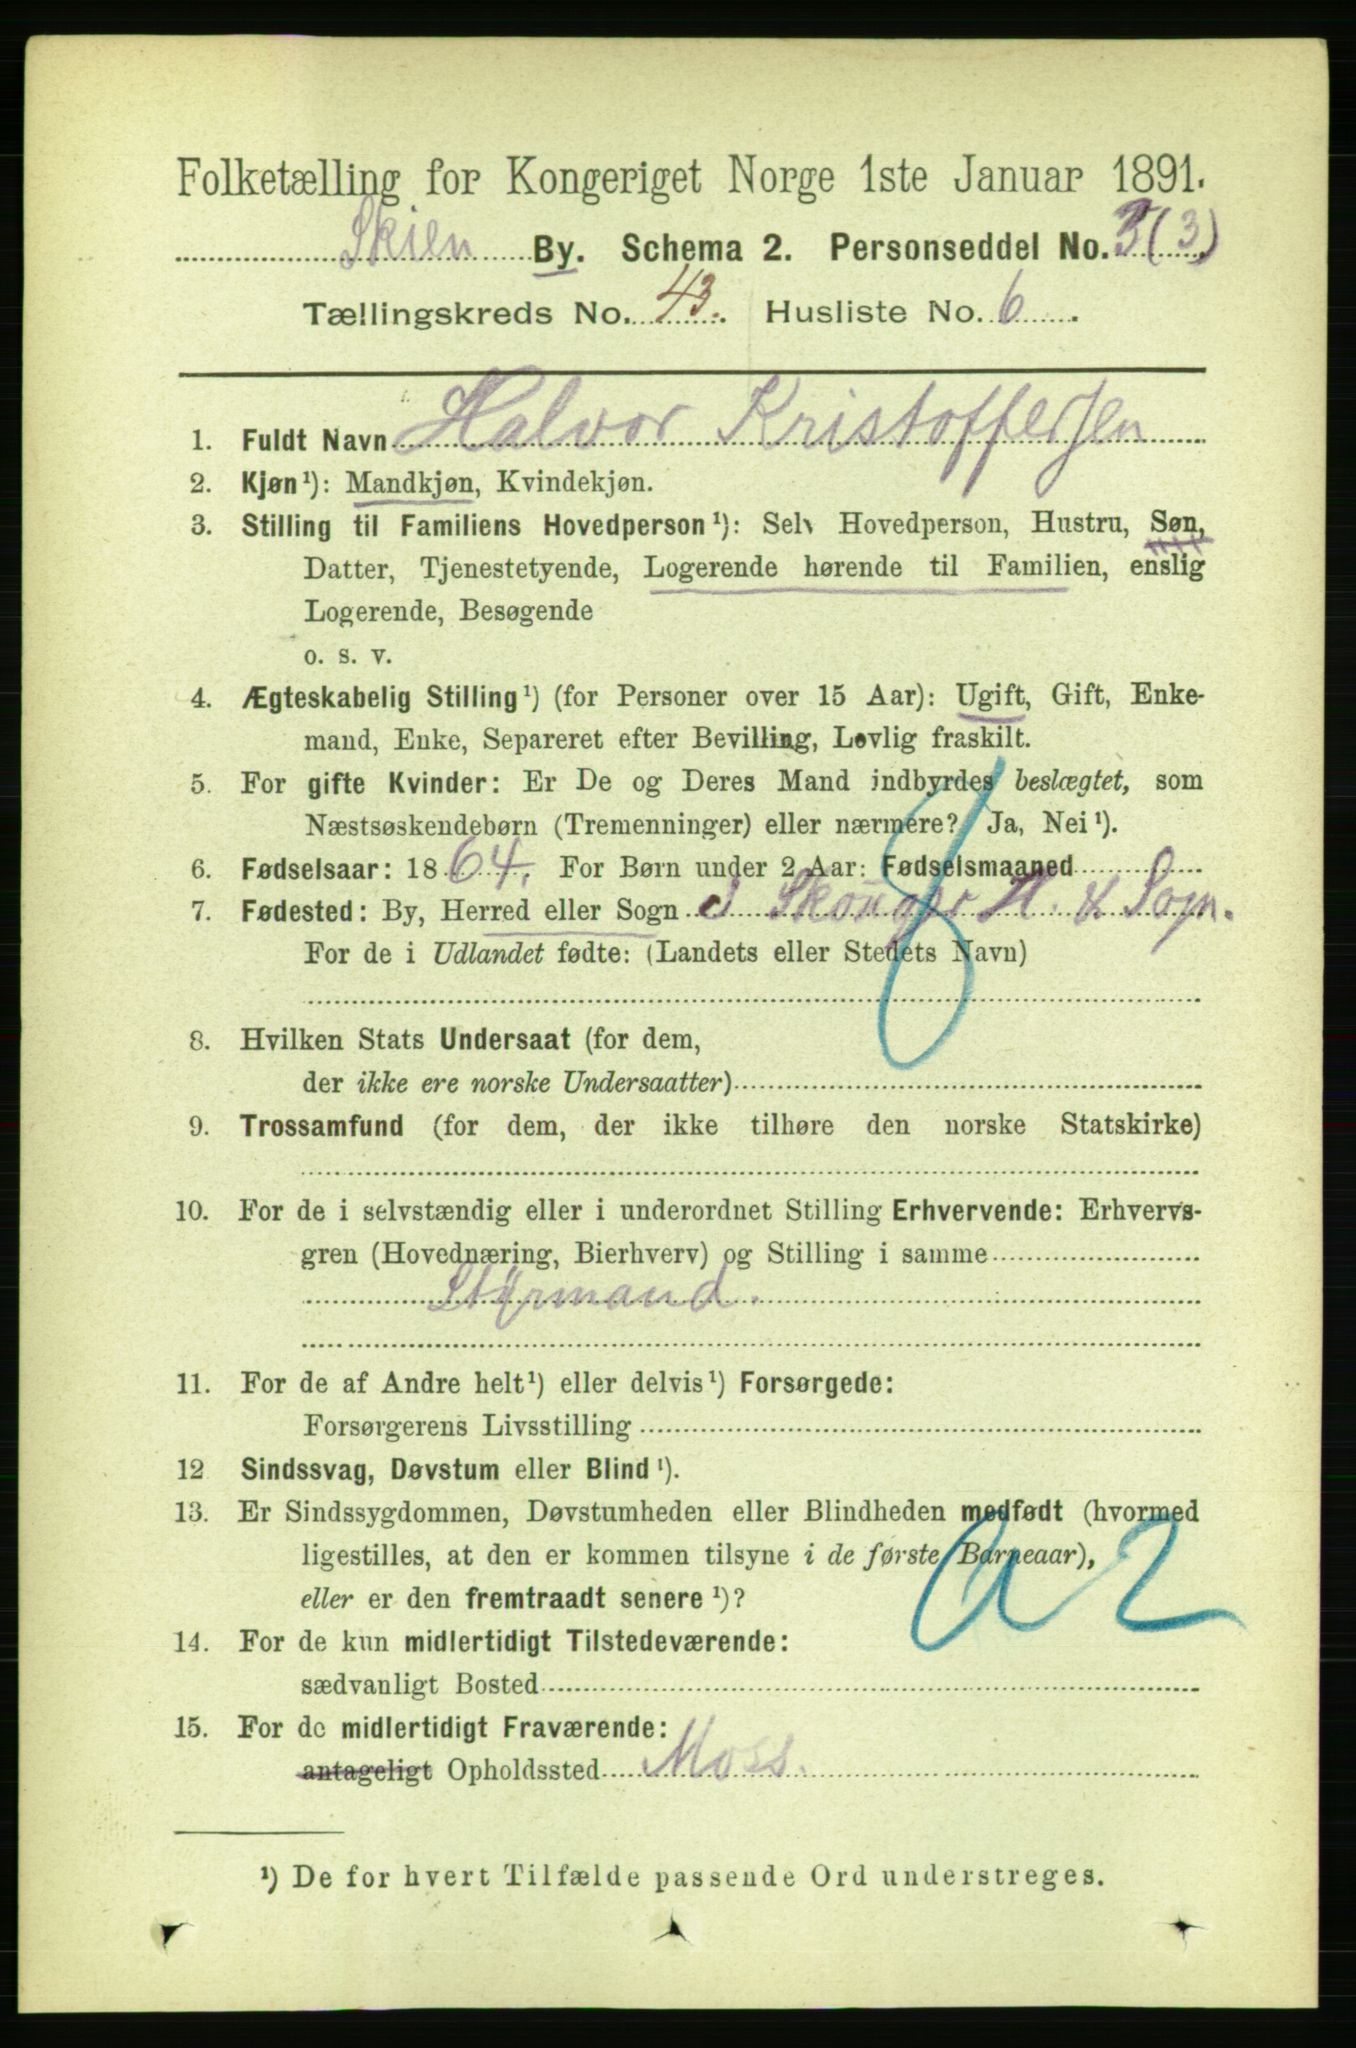 Folketælling for Kongeriget Norge 1ste Januar 1891.
Skien By. Schema 2. Personseddel No. 3 (3)
Tællingskreds No. 43. Husliste No. 6.
1. Fuldt Navn Halvor Kristoffersen
2. Kjøn ¹): Mandkjøn, Kvindekjøn.
3. Stilling til Familiens Hovedperson ¹): Selv Hovedperson, Hustru, Søn,
Datter, Tjenestetyende, Logerende hørende til Familien, enslig
Logerende, Besøgende
o. s. v.
4. Ægteskabelig Stilling ¹) (for Personer over 15 Aar): Ugift, Gift, Enke-
mand, Enke, Separeret efter Bevilling, Lovlig fraskilt.
5. For gifte Kvinder: Er De og Deres Mand indbyrdes beslægtet, som
Næstsøskendebørn (Tremenninger) eller nærmere? Ja, Nei ¹).
6. Fødselsaar: 1864. For Børn under 2 Aar: Fødselsmaaned
7. Fødested: By, Herred eller Sogn i Skouger H. & Sogn.
For de i Udlandet fødte: (Landets eller Stedets Navn)
8. Hvilken Stats Undersaat (for dem,
der ikke ere norske Undersaatter)
9. Trossamfund (for dem, der ikke tilhøre den norske Statskirke)
10. For de i selvstændig eller i underordnet Stilling Erhvervende: Erhvervs-
gren (Hovednæring, Bierhverv) og Stilling i samme
Styrmand.
11. For de af Andre helt ¹) eller delvis ¹) Forsørgede:
Forsørgerens Livsstilling
12 Sindssvag, Døvstum eller Blind ¹).
13. Er Sindssygdommen, Døvstumheden eller Blindheden medfødt (hvormed
ligestilles, at den er kommen tilsyne i de første Barneaar),
eller er den fremtraadt senere ¹)?
a2
14. For de kun midlertidigt Tilstedeværende:
sædvanligt Bosted
15. For de midlertidigt Fraværende:
antageligt Opholdssted Moss.
¹) De for hvert Tilfælde passende Ord understreges.